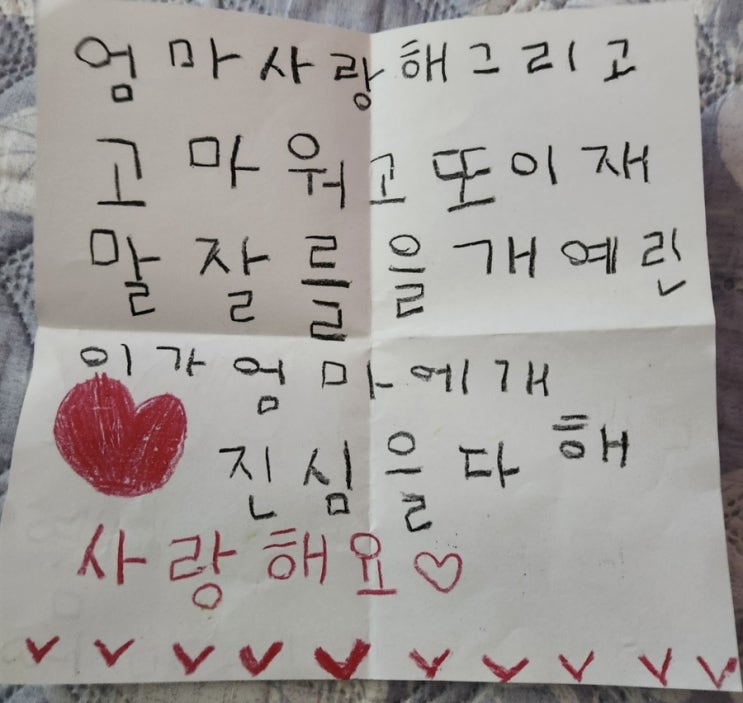 엄마사랑해그리고
고마워고또이재
말잘를을개예린
이가엄마에개
진심을다해
사랑해요♡